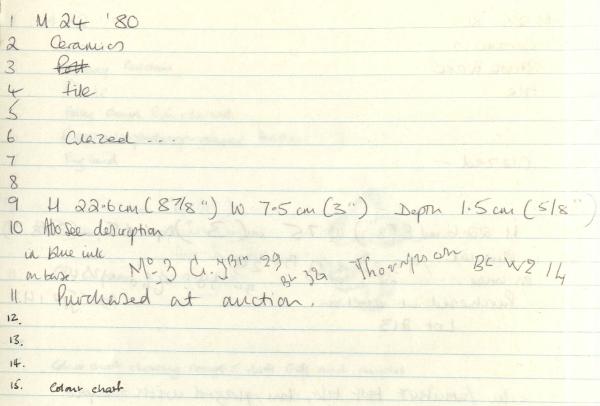 1 M 24 '80
2 Ceramics
3 Pott
4 tile
5
6 Glazed ...
7
8
9 H 22.6cm (8 7/8") W 7.5cm (3") Depth 1.5cm (5/8")
10 Also see description
in blue ink
on base. Mº 3 G. JBm 29 BL 324 Thompson BC W2 14
11 Purchased at auction.
12.
13.
14.
15. Colour chart